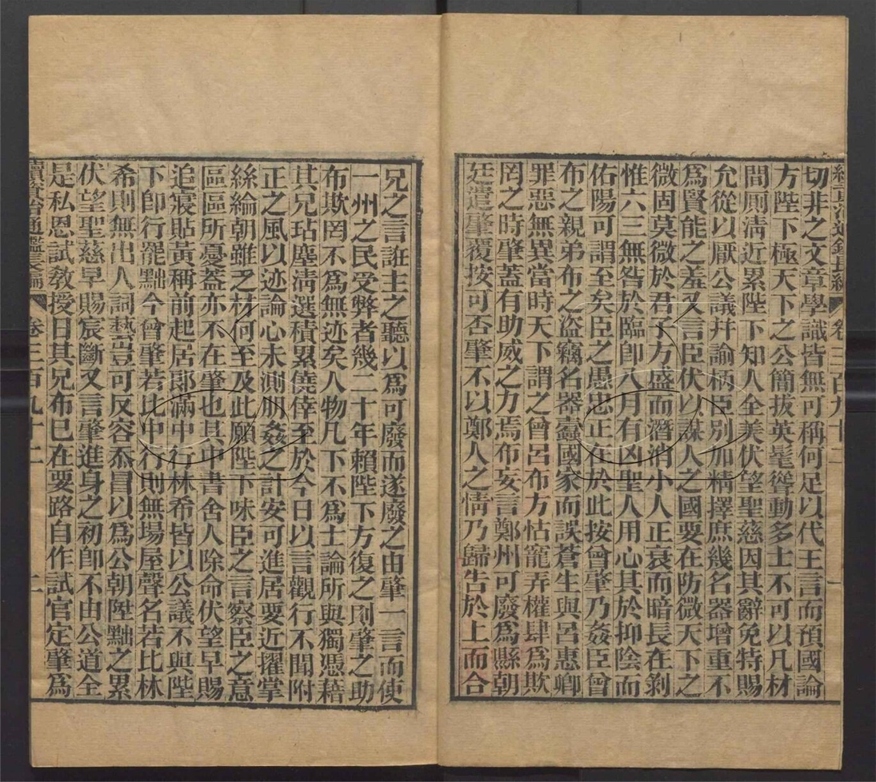 續資治通鑑長編 卷三百九十二 一
切井之文章學識皆無可稱何足以代王言而預國論
方陛下極天下之公簡拔英髦聳動多士不可以凡材
間厠淸近累陛下知人全美伏望聖慈因其辭免特賜
允從以厭公議幷諭柄臣別加精擇庶幾名器增重不
爲賢能之羞又言臣伏以謀人之國要在防微天下之
微固莫微於君子方盛而潛消小人正衰而暗長在剝
惟六三無咎於臨卽八月有凶聖人用心其於抑陰而
佑陽可謂至矣臣之愚忠正在於此按曾肇乃姦臣曾
布之親弟布之盜竊名器蠹國家而誤蒼生與呂惠卿
罪惡無異當時天下謂之曾呂布方怙寵弄權肆爲欺
罔之時肇蓋有助威之力焉布妄言鄭州可廢爲縣朝
廷遣肇覆按可否肇不以鄭人之情乃歸吿於上而合
兄之言誑主之聽以爲可廢而遂廢之由肇一言而使
一州之民受弊者幾二十年賴陛下方復之則肇之助
布欺罔不爲無迹矣人物凡下不爲士論所與獨憑藉
其兄玷塵淸選積累僥倖至於今日以言觀行不聞附
正之風以迹論心未測朋姦之計安可進居要近擢掌
絲綸朝雖乏材何至及此願陛下味臣之言察臣之意
區區所憂蓋亦不在肇也其中書舍人除命伏望早賜
追寢貼黃稱前起居郞滿中行林希皆以公議不與陛
下卽行罷黜今曾肇若比中行則無場屋聲名若比林
希則無出人詞藝豈可反容忝冒以爲公朝陞黜之累
伏望聖慈早賜宸斷又言肇進身之初卽不由公道全
是私恩試敎授日其兄布已在要路自作試官定肇爲
續資治通鑑長編 卷三百九十二 二